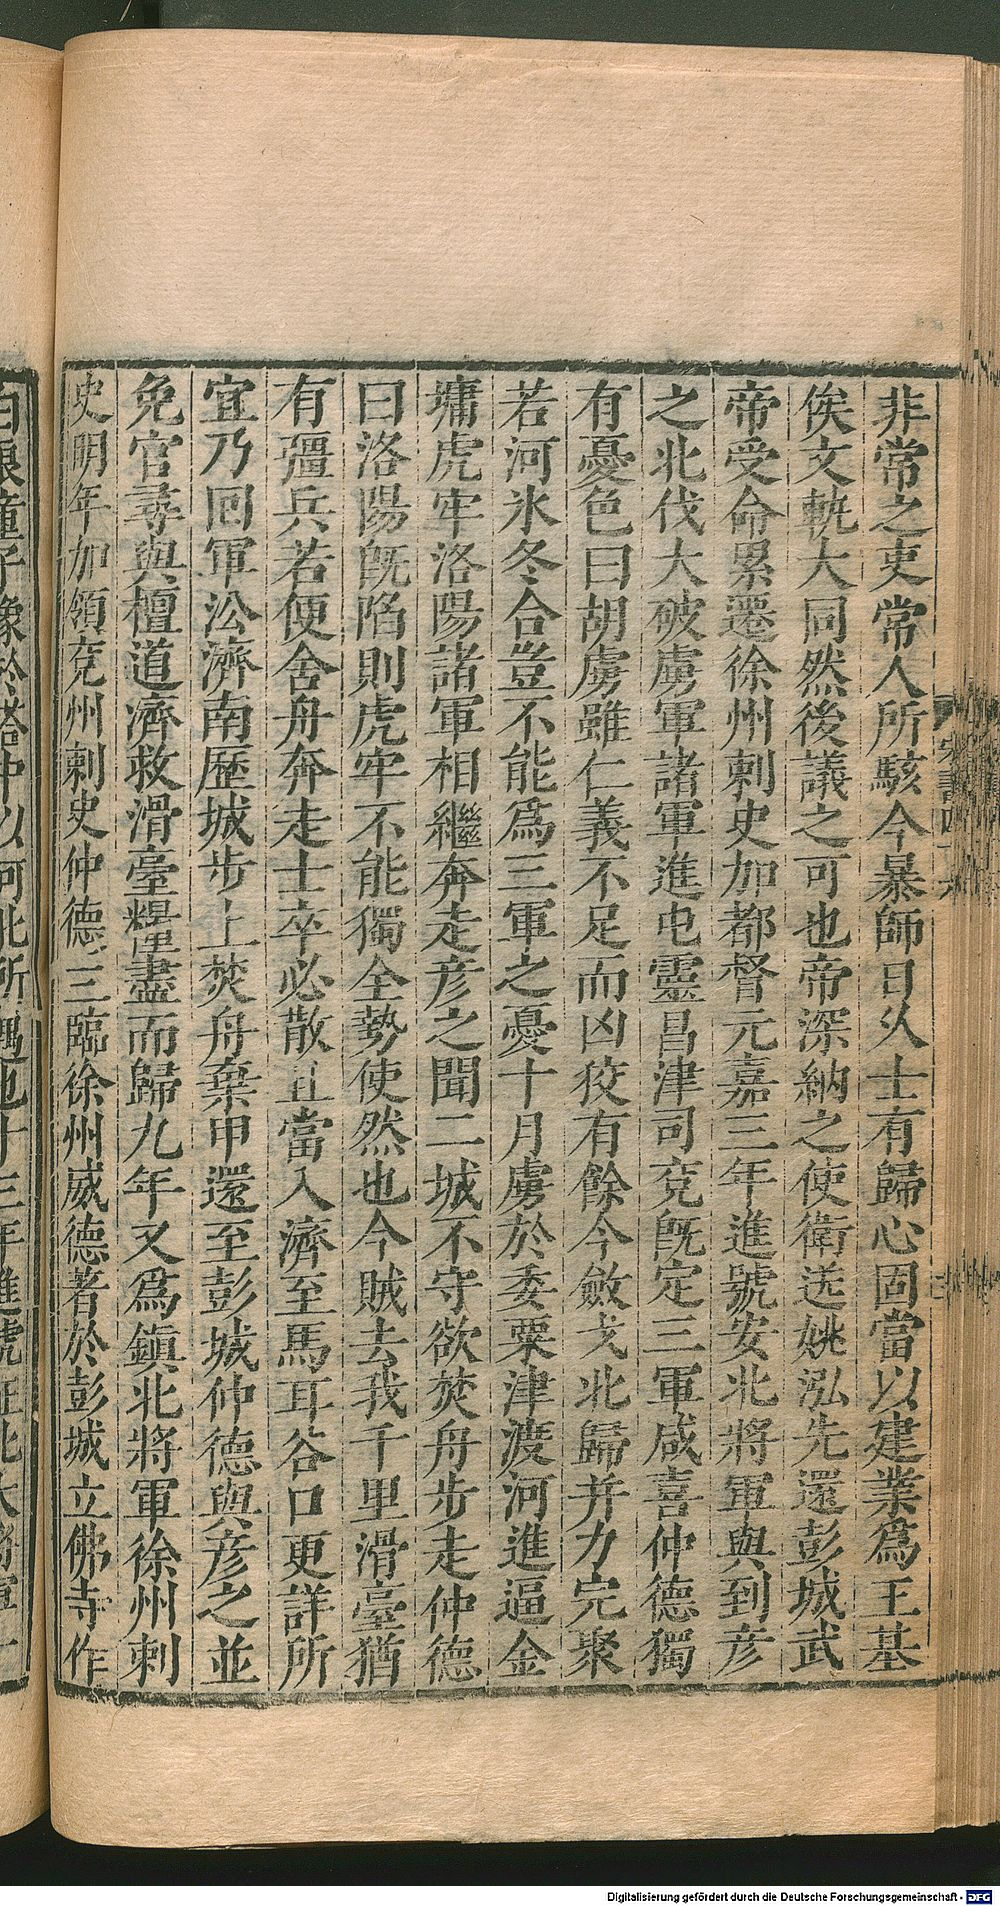 非常之吏常人所駭今暴師日久士有歸心固當以建業爲王基
俟文軌大同然後議之可也帝深納之使衛送姚泓先還彭城武
帝受命累遷徐州刺史加都督元嘉三年進號安北將軍與到彥
之北伐大破虜軍諸軍進屯靈昌津司兗旣定三軍咸喜仲德獨
有憂色曰胡虜雖仁義不足而凶狡有餘今斂戈北歸并力完聚
若河氷冬合豈不能爲三軍之憂十月虜於委粟津渡河進逼金
墉虎牢洛陽諸軍相繼奔走彥之聞二城不守欲焚舟步走仲德
曰洛陽旣陷則虎牢不能獨全勢使然也今賊去我千里滑臺猶
有彊兵若便舍舟奔走士卒必散且當入濟至馬耳谷口更詳所
宜乃回軍沿濟南歷城步上焚舟棄甲還至彭城仲德與彥之並
免官尋與檀道濟救滑臺糧盡而歸九年又爲鎮北將軍徐州刺
史明年加領兗州刺史仲德三臨徐州威德著於彭城立佛寺作
白狼童子像於塔中以河北所遇也十三年進號征北大將軍十
Digitalisierung gefördert durch die Deutsche Forschungsgemeinschaft - DFG